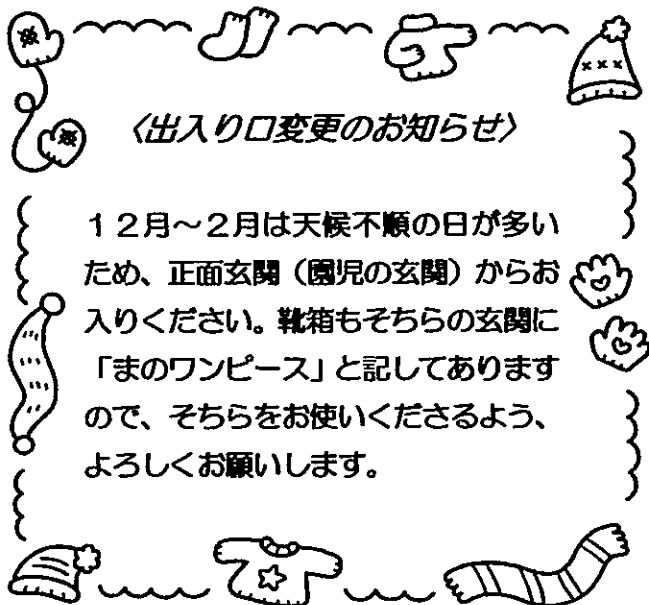 〈出入り口変更のお知らせ〉
12月～2月は天候不順の日が多い
ため、正面玄関（園児の玄関）からお
入りください。靴箱もそちらの玄関に
「まのワンピース」と記してあります
ので、そちらをお使いくださるよう、
よろしくお願いします。